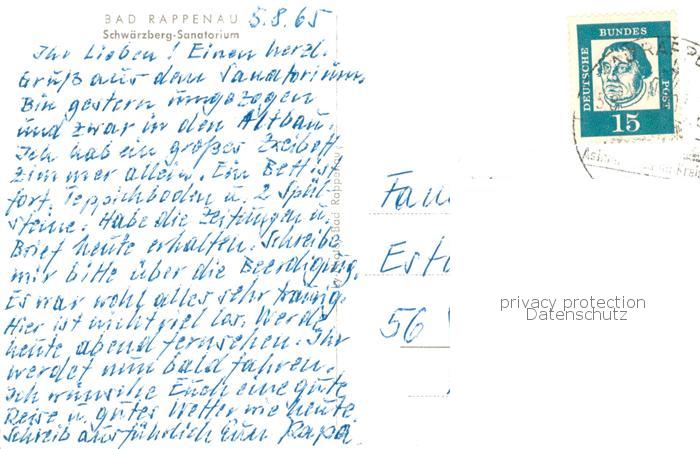 BAD RAPPENAU 5.8.65
Schwärzberg-Sanatorium
Ihr Lieben! Einen herzl.
Gruß aus dem Sanatorium.
Bin gestern umgezogen
und zwar in den Altbau.
Ich hab ein großes Zweibett
zimmer allein. Ein Bett ist
fort. Teppichboden u. 2 Spül-
steine. Habe die Zeitungen u.
Brief heute erhalten. Schreibe
mir bitte über die Beerdigung.
Es war wohl alles sehr traurig.
Hier ist nicht viel los. Werde
heute abend fernsehen. Ihr
werdet nun bald fahren.
Ich wünsche Euch eine gute
Reise u. gutes Wetter wie heute.
Schreib ausführlich Euer Papa.
Bad Rappenau
DEUTSCHE BUNDESPOST
15
Fam
Esto
56
privacy protection
Datenschutz